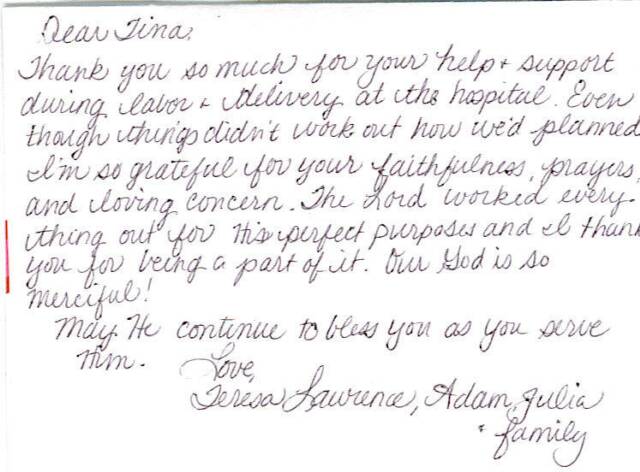 Dear Tina,
Thank you so much for your help + support
during labor + delivery at the hospital. Even
though things didn't work out how we'd planned
I'm so grateful for your faithfulness, prayers,
and loving concern. The Lord worked every-
thing out for His perfect purposes and I thank
you for being a part of it. Our God is so
merciful!
May He continue to bless you as you serve
Him.
Love,
Teresa Lawrence, Adam, Julia
+ family